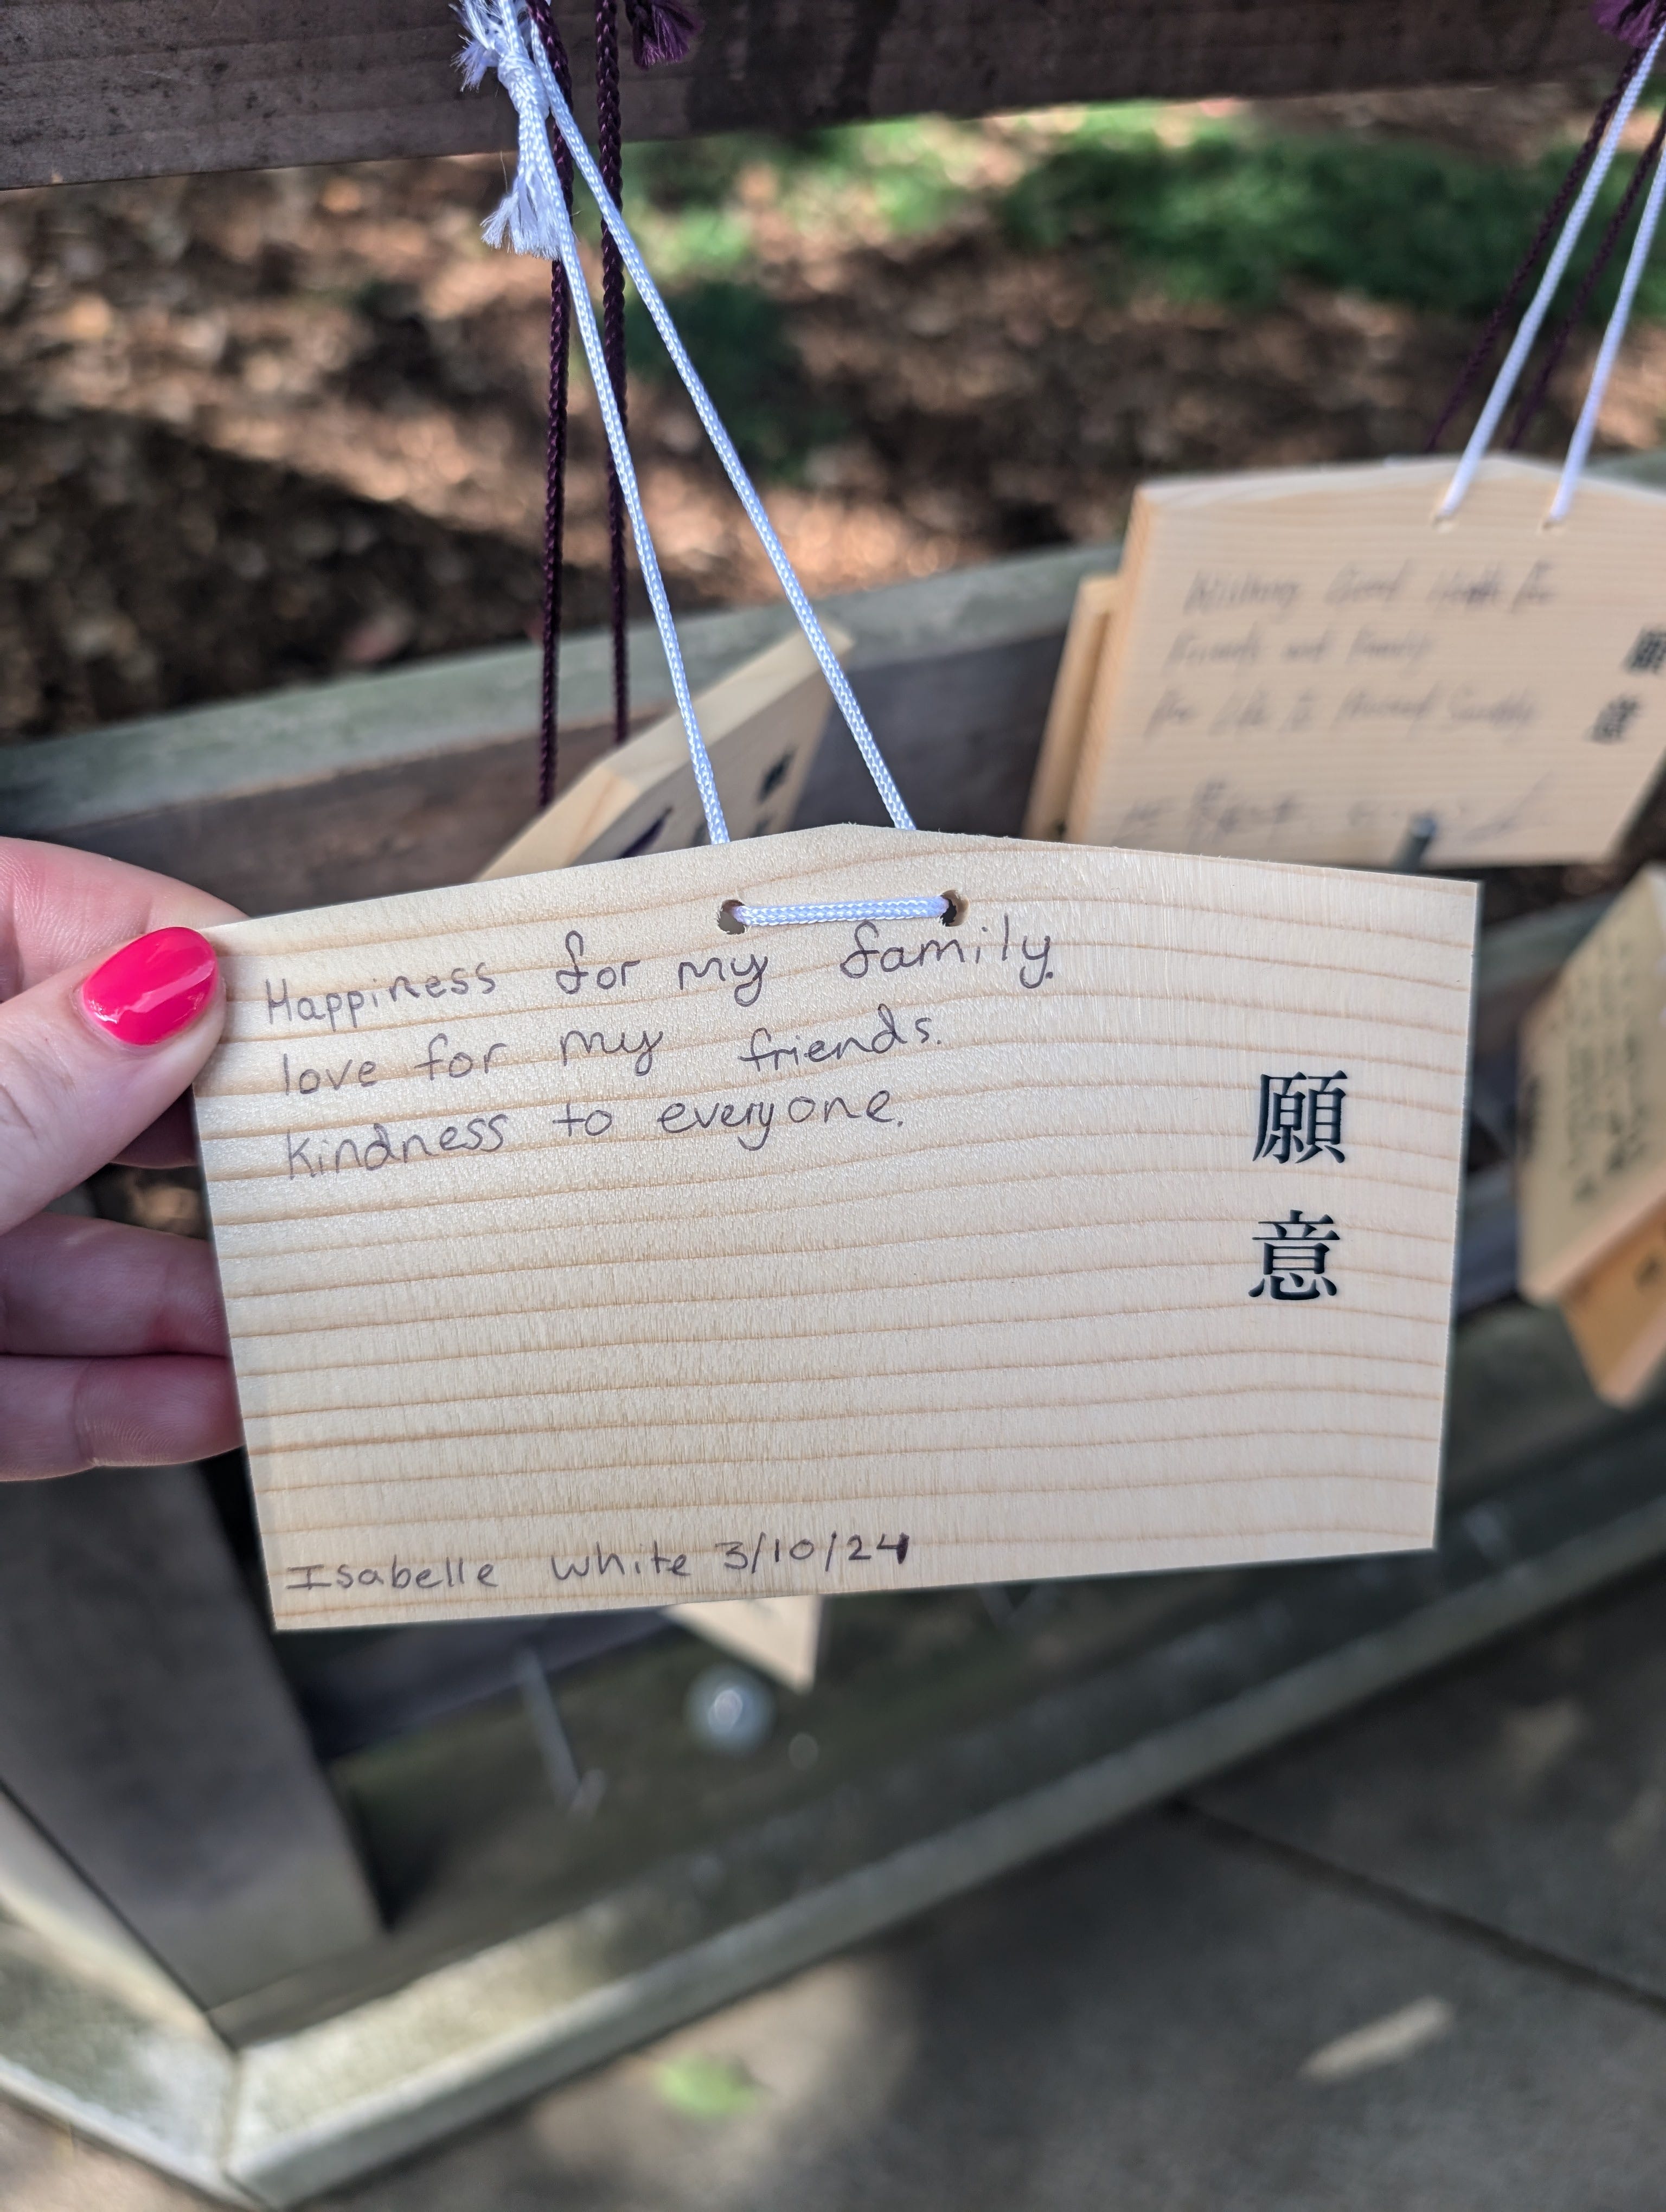 Happiness for my family.
love for my friends.
kindness to everyone.
願意
Isabelle White 3/10/24
Wishing Good Health for
Friends and Family
願意